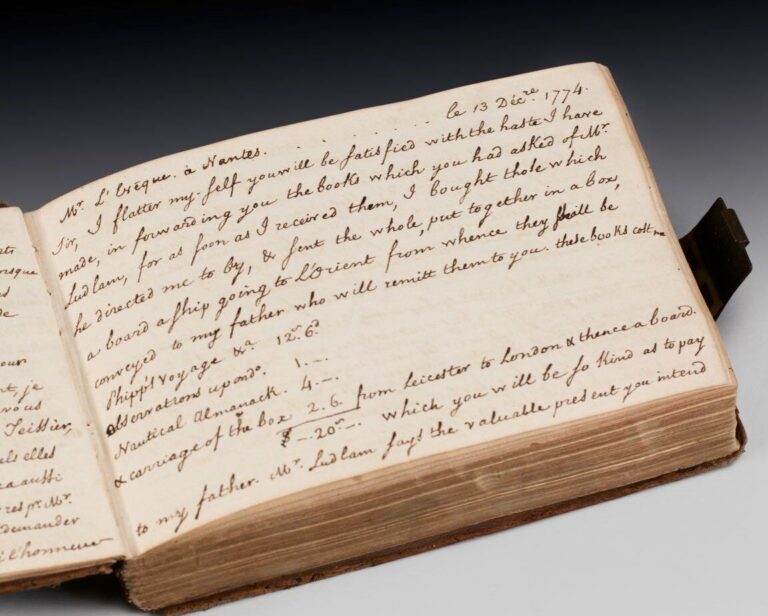 resque
de
t je
vous
Teissier,
els elles
a aussi
res pr. Mr.
demander
l'honneur
Mr. L'Evêque. à Nantes. . . . . . . . . . . le 13 Décre. 1774.
Sir, I flatter my-self you will be satisfied with the haste I have
made, in forwarding you the books which you had asked of Mr.
Ludlam, for as soon as I received them, I bought those which
he directed me to by, & sent the whole, put together in a box,
a board a ship going to L'Orient from whence they will be
conveyed to my father who will remitt them to you. these books cost me
Phipp's voyage &a 12s. 6d
observations upon do. 1.—
Nautical Almanack. 4.—
& carriage of the box 2.6. from Leicester to London & thence a board.
£ —.20s.—. which you will be so kind as to pay
to my father. Mr. Ludlam says the valuable present you intend